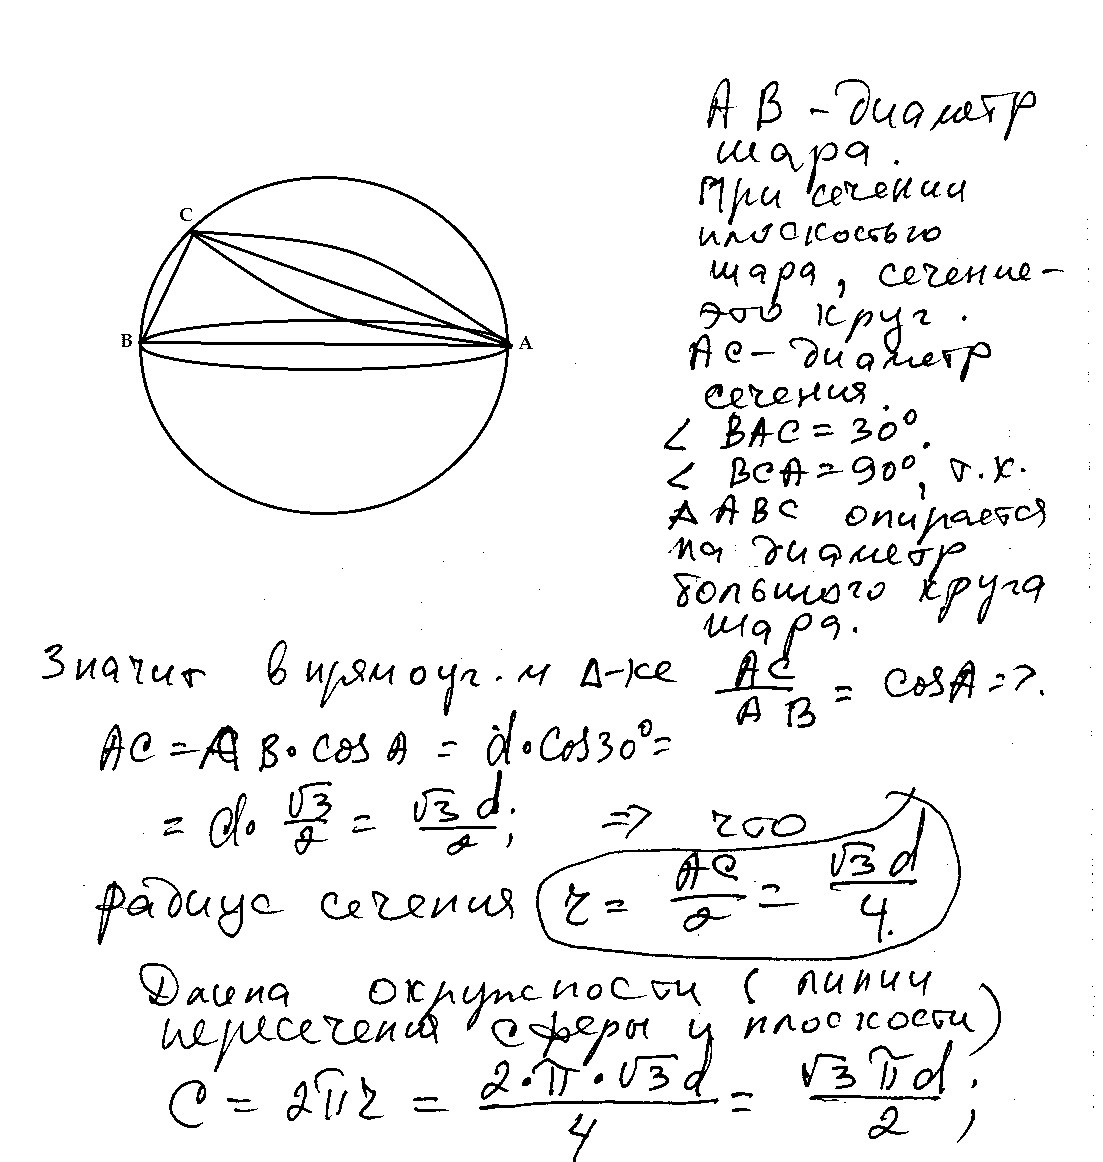 C
B
A
AB - диаметр
шара.
При сечении
плоскостью
шара, сечение -
это круг.
AC - диаметр
сечения.
∠ BAC = 30°.
∠ BCA = 90°, т.к.
Δ ABC опирается
на диаметр
большого круга
шара.
Значит в прямоуг.м Δ-ке AC/AB = cosA =>.
AC = AB · cosA = d · cos30° =
= d · √3/2 = √3 d/2; => что
радиус сечения r = AC/2 = √3 d/4.
Длина окружности (линии
пересечения сферы и плоскости)
C = 2πr = 2·π·√3 d/4 = √3 πd/2;